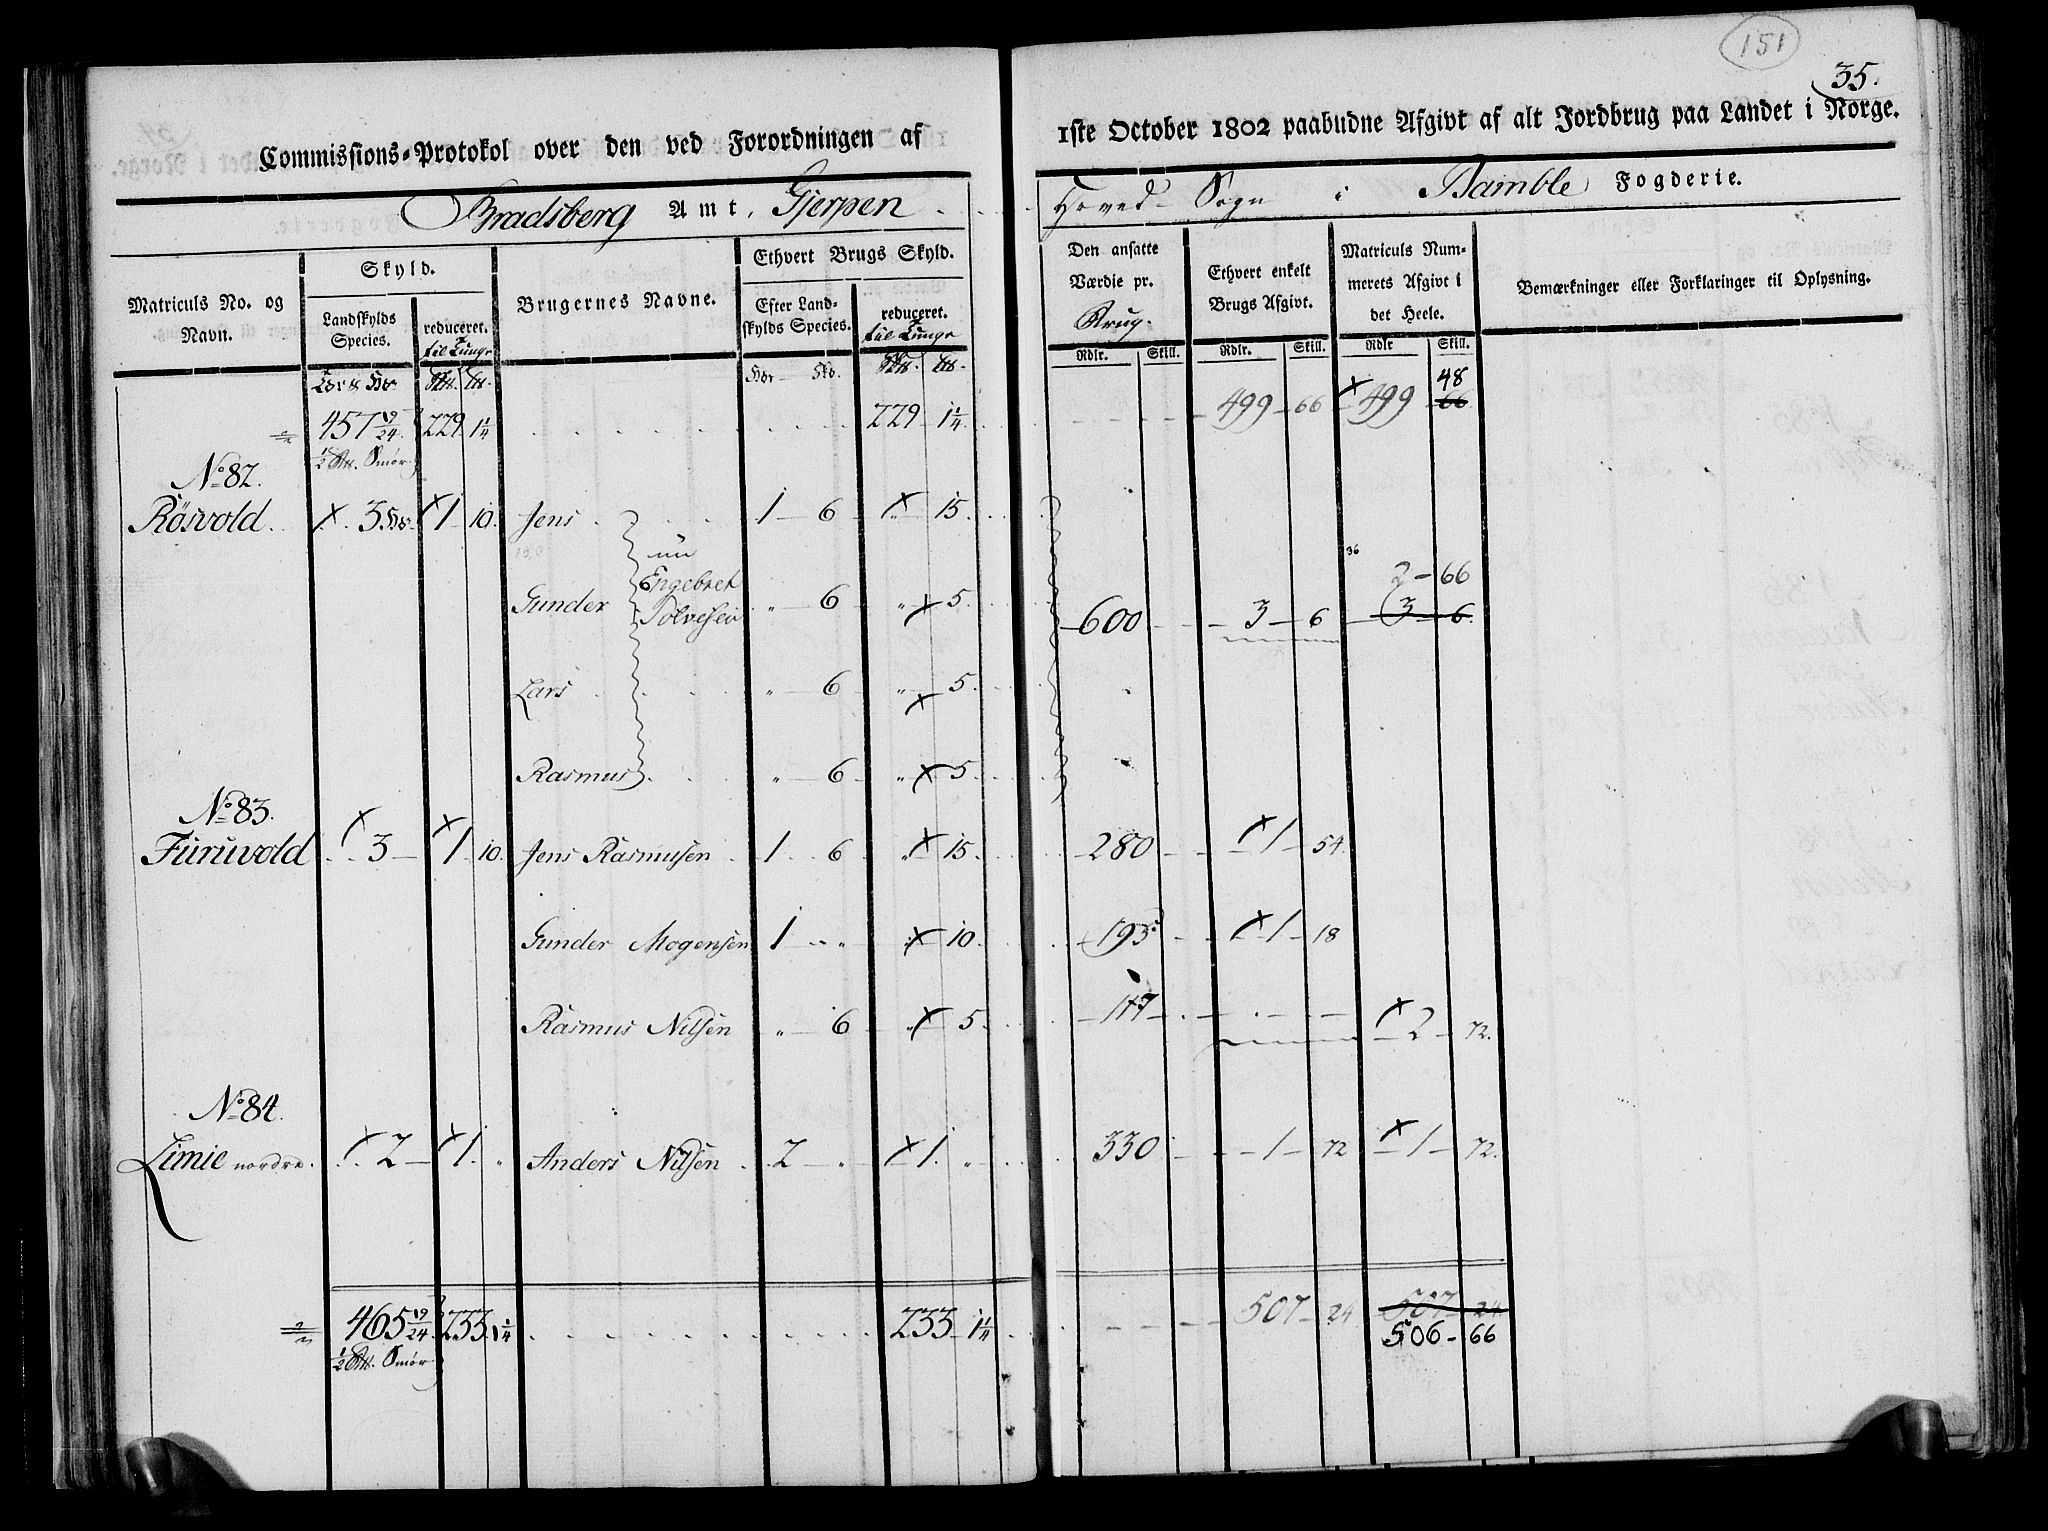 151
35.
Commissions-Protokol over den ved Forordningen af
1ste October 1802 paabudne Afgivt af alt Jordbrug paa Landet i Norge.
Bradsberg Amt, Gjerpen
Hoved Sogn i Bamble Fogderie.
Matriculs No. og Navn.
Skyld.
Landskylds Species.
reduceret. til Tunge
Brugernes Navne.
Ethvert Brugs Skyld.
Efter Landskylds Species.
reduceret. til Tunge
Den ansatte Værdie pr. Brug.
Rdlr. Skill.
Ethvert enkelt Brugs Afgivt.
Rdlr. Skill.
Matriculs Nummerets Afgivt i det Heele.
Rdlr Skill.
Bemærkninger eller Forklaringer til Oplysning.
457 19/24 229 1 1/4 229 1 1/4 499 66 × 499 66 48
1/2 Smør
No 82.
Rösvold × 3 × 1 10 Jens 1 6 × 15
Gunder nu Engebret Tolvesen 6 × 5 600 3 6 3 6
36 2 66
Lars 6 × 5
Rasmus 6 × 5
No 83.
Furuvold × 3 × 1 10. Jens Rasmusen 1 6 × 15 280 × 1 54
Gunder Mogensen 1 × 10 195 × 1 18
Rasmus Nilsen 6 × 5 117 × 2 72.
No 84.
Limie nordre. × 2 × 1 Anders Nilsen 2 × 1 330 1 72 × 1 72.
465 19/24 233 1 1/4 233 1 1/4 507 24 507 24
1/2 Smør 506 66